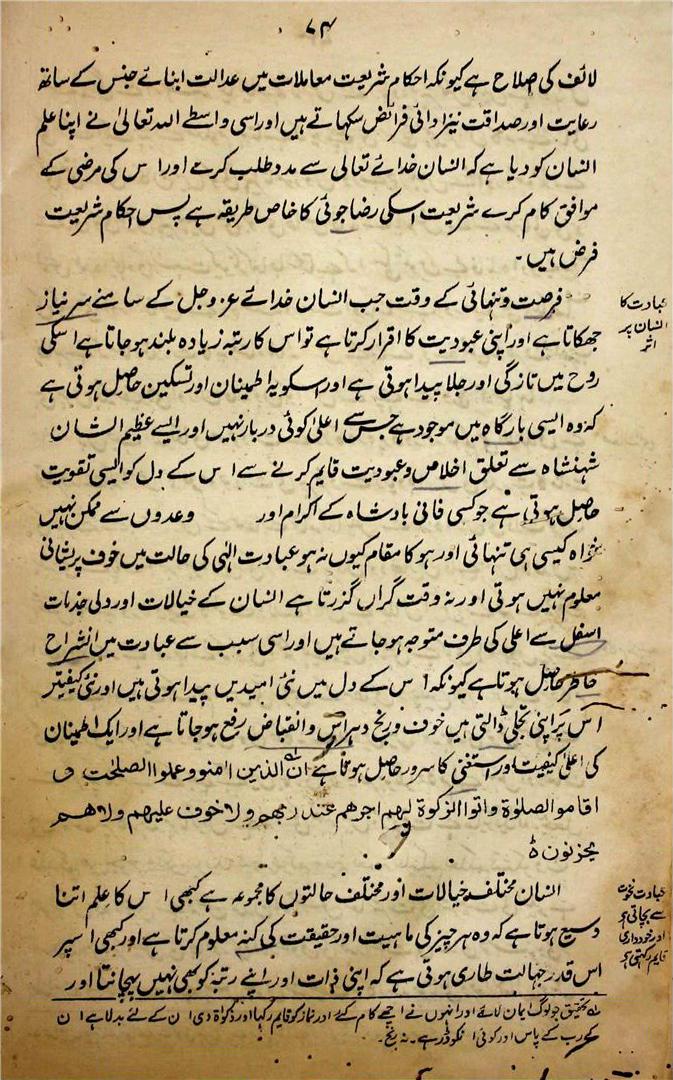 ۷۴
لائف کی اصلاح ہے کیونکہ احکام شریعت معاملات میں عدالت ابنائے جنس کے ساتھ
رعایت اور صداقت نیز ادائی فرائض سکہاتے ہیں اور اسی واسطے اللہ تعالیٰ نے اپنا علم
انسان کو دیا ہے کہ انسان خدائے تعالی سے مدد طلب کرے اور اس کی مرضی کے
موافق کام کرے شریعت اسکی رضا جوئی کا خاص طریقہ ہے پس احکام شریعت
فرض ہیں۔
عبادت کا
انسان پر
اثر
فرصت و تنہائی کے وقت جب انسان خدائے عز و جل کے سامنے سر نیاز
جھکاتا ہے اور اپنی عبودیت کا اقرار کرتا ہے تو اس کا رتبہ زیادہ بلند ہو جاتا ہے اسکی
روح میں تازگی اور جلا پیدا ہوتی ہے اور اسکو یہ اطمینان اور تسکین حاصل ہوتی ہے
کہ وہ ایسی بارگاہ میں موجود ہے جس سے اعلیٰ کوئی دربار نہیں اور ایسے عظیم الشان
شہنشاہ سے تعلق اخلاص و عبودیت قایم کرنے سے اس کے دل کو ایسی تقویت
حاصل ہوتی ہے جو کسی فانی بادشاہ کے اکرام اور وعدوں سے ممکن نہیں
خواہ کیسی ہی تنہائی اور ہو کا مقام کیوں نہ ہو عبادت الہٰی کی حالت میں خوف پریشانی
معلوم نہیں ہوتی اور نہ وقت گراں گزرتا ہے انسان کے خیالات اور دلی جذبات
اسفل سے اعلی کی طرف متوجہ ہو جاتے ہیں اور اسی سبب سے عبادت میں انشراح
خاطر حاصل ہوتا ہے کیونکہ اس کے دل میں نئی امیدیں پیدا ہوتی ہیں اور نئی کیفیتیں
اس پر اپنی تجلی ڈالتی ہیں خوف و رنج و ہراس و انقباض رفع ہو جاتا ہے اور ایک اطمینان
کی اعلیٰ کیفیت اور استغنیٰ کا سرور حاصل ہوتا ہے ان الذین امنو و عملوا الصلحت و
اقاموا الصلوٰۃ واتوا الزکوۃ لہم اجرھم عند ربھم ولا خوف علیہم ولا ھم
یحزنون ہ
عبادت نخوت
سے بچاتی ہے
اور خودداری
قایم رکھتی ہے
انسان مختلف خیالات اور مختلف حالتوں کا مجموعہ ہے کبھی اس کا علم اتنا
وسیع ہوتا ہے کہ وہ ہر چیز کی ماہیت اور حقیقت کی کنہ معلوم کرتا ہے اور کبھی اسپر
اس قدر جہالت طاری ہوتی ہے کہ اپنی ذات اور اپنے رتبہ کو بھی نہیں پہچانتا اور
لہ تحقیق جو لوگ ایمان لائے اور انہوں نے اچھے کام کئے اور نماز کو قایم رکھا اور زکواۃ دی ان کے لئے بدلا ہے ان
کے رب کے پاس اور کوئی انکو ڈر ہے۔ نہ رنج۔